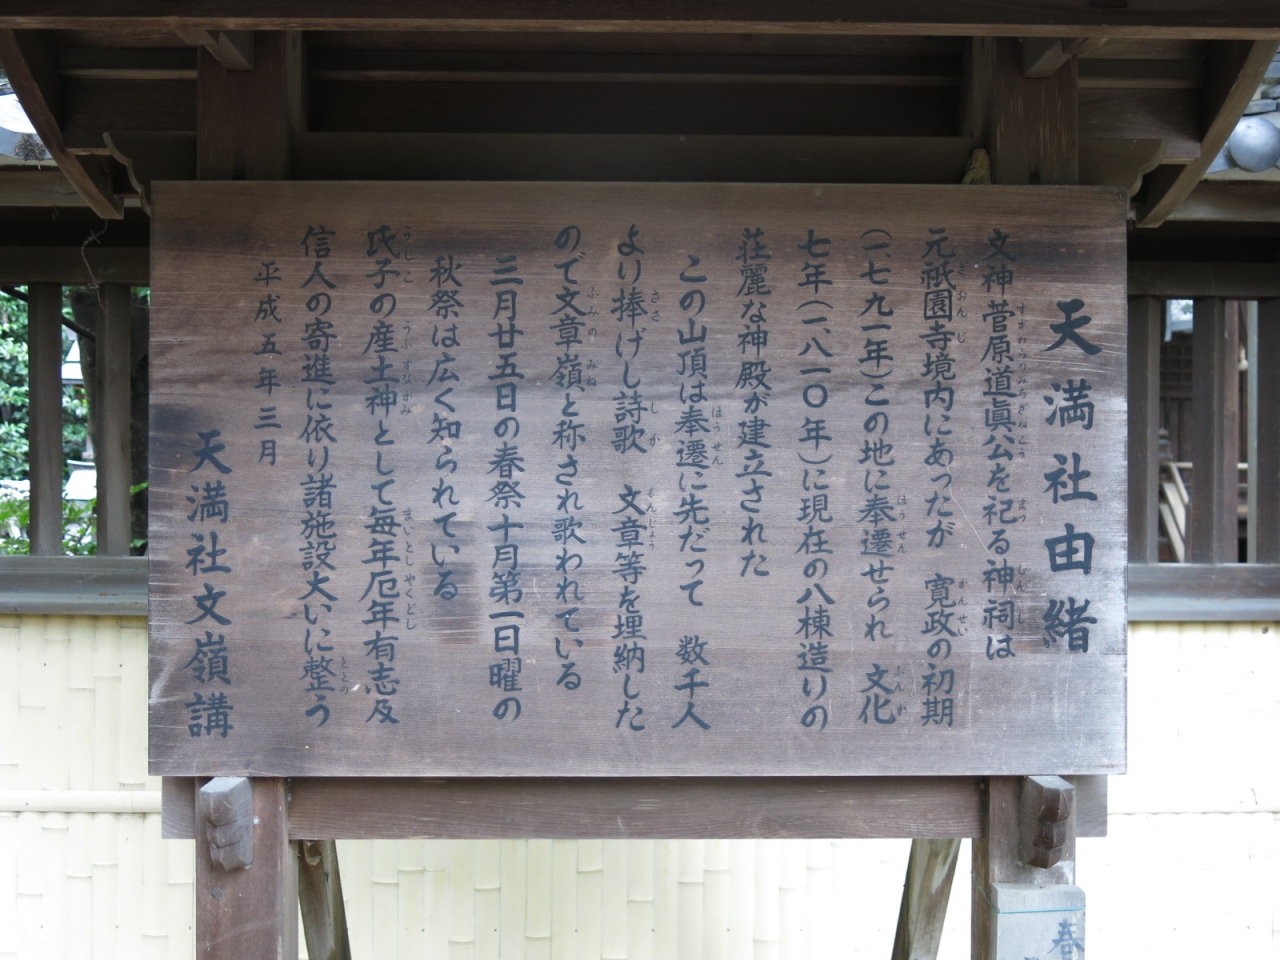 天満社由緒
文神菅原道眞公を祀る神祠は
元祇園寺境内にあったが　寛政の初期
(一七九一年)この地に奉遷せられ　文化
七年(一八一〇年)に現在の八棟造りの
荘麗な神殿が建立された
この山頂は奉遷に先だって　数千人
より捧げし詩歌　文章等を埋納した
ので文章嶺、と称され歌われている
三月廿五日の春祭十月第一日曜の
秋祭は広く知られている
氏子の産土神として毎年厄年有志及
信人の寄進に依り諸施設大いに整う
平成五年三月
天満社文嶺講
春